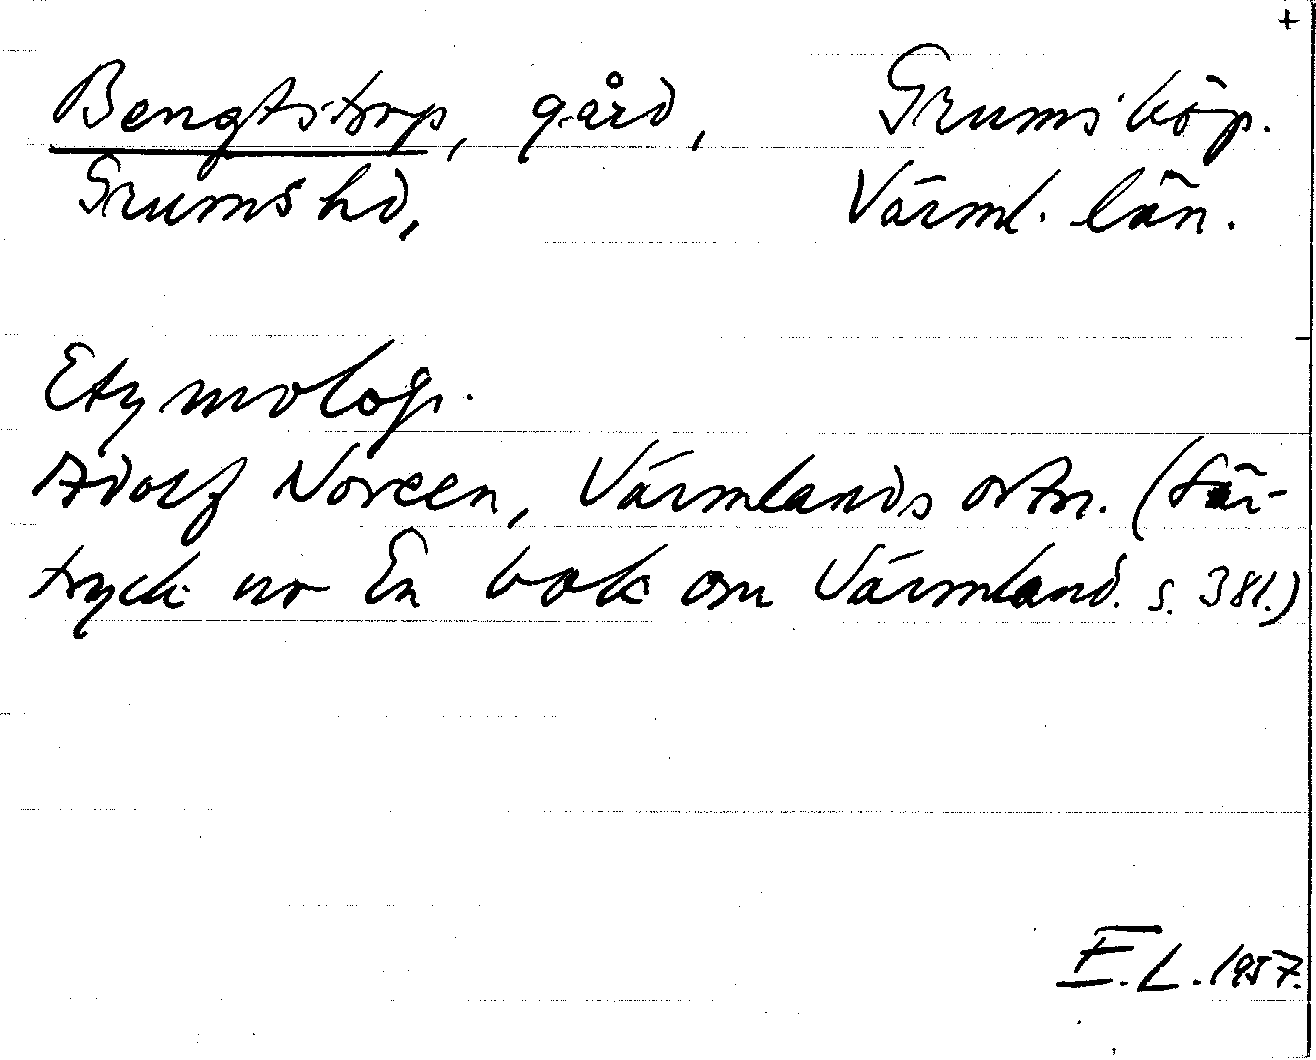 +
Bengtstorp, gård, Grums köp.
Grums hd, Värml. län.
Etymologi.
Adolf Noreen, Värmlands ortn. (Sär-
tryck ur En bok om Värmland. s. 381.)
E.L. 1957.